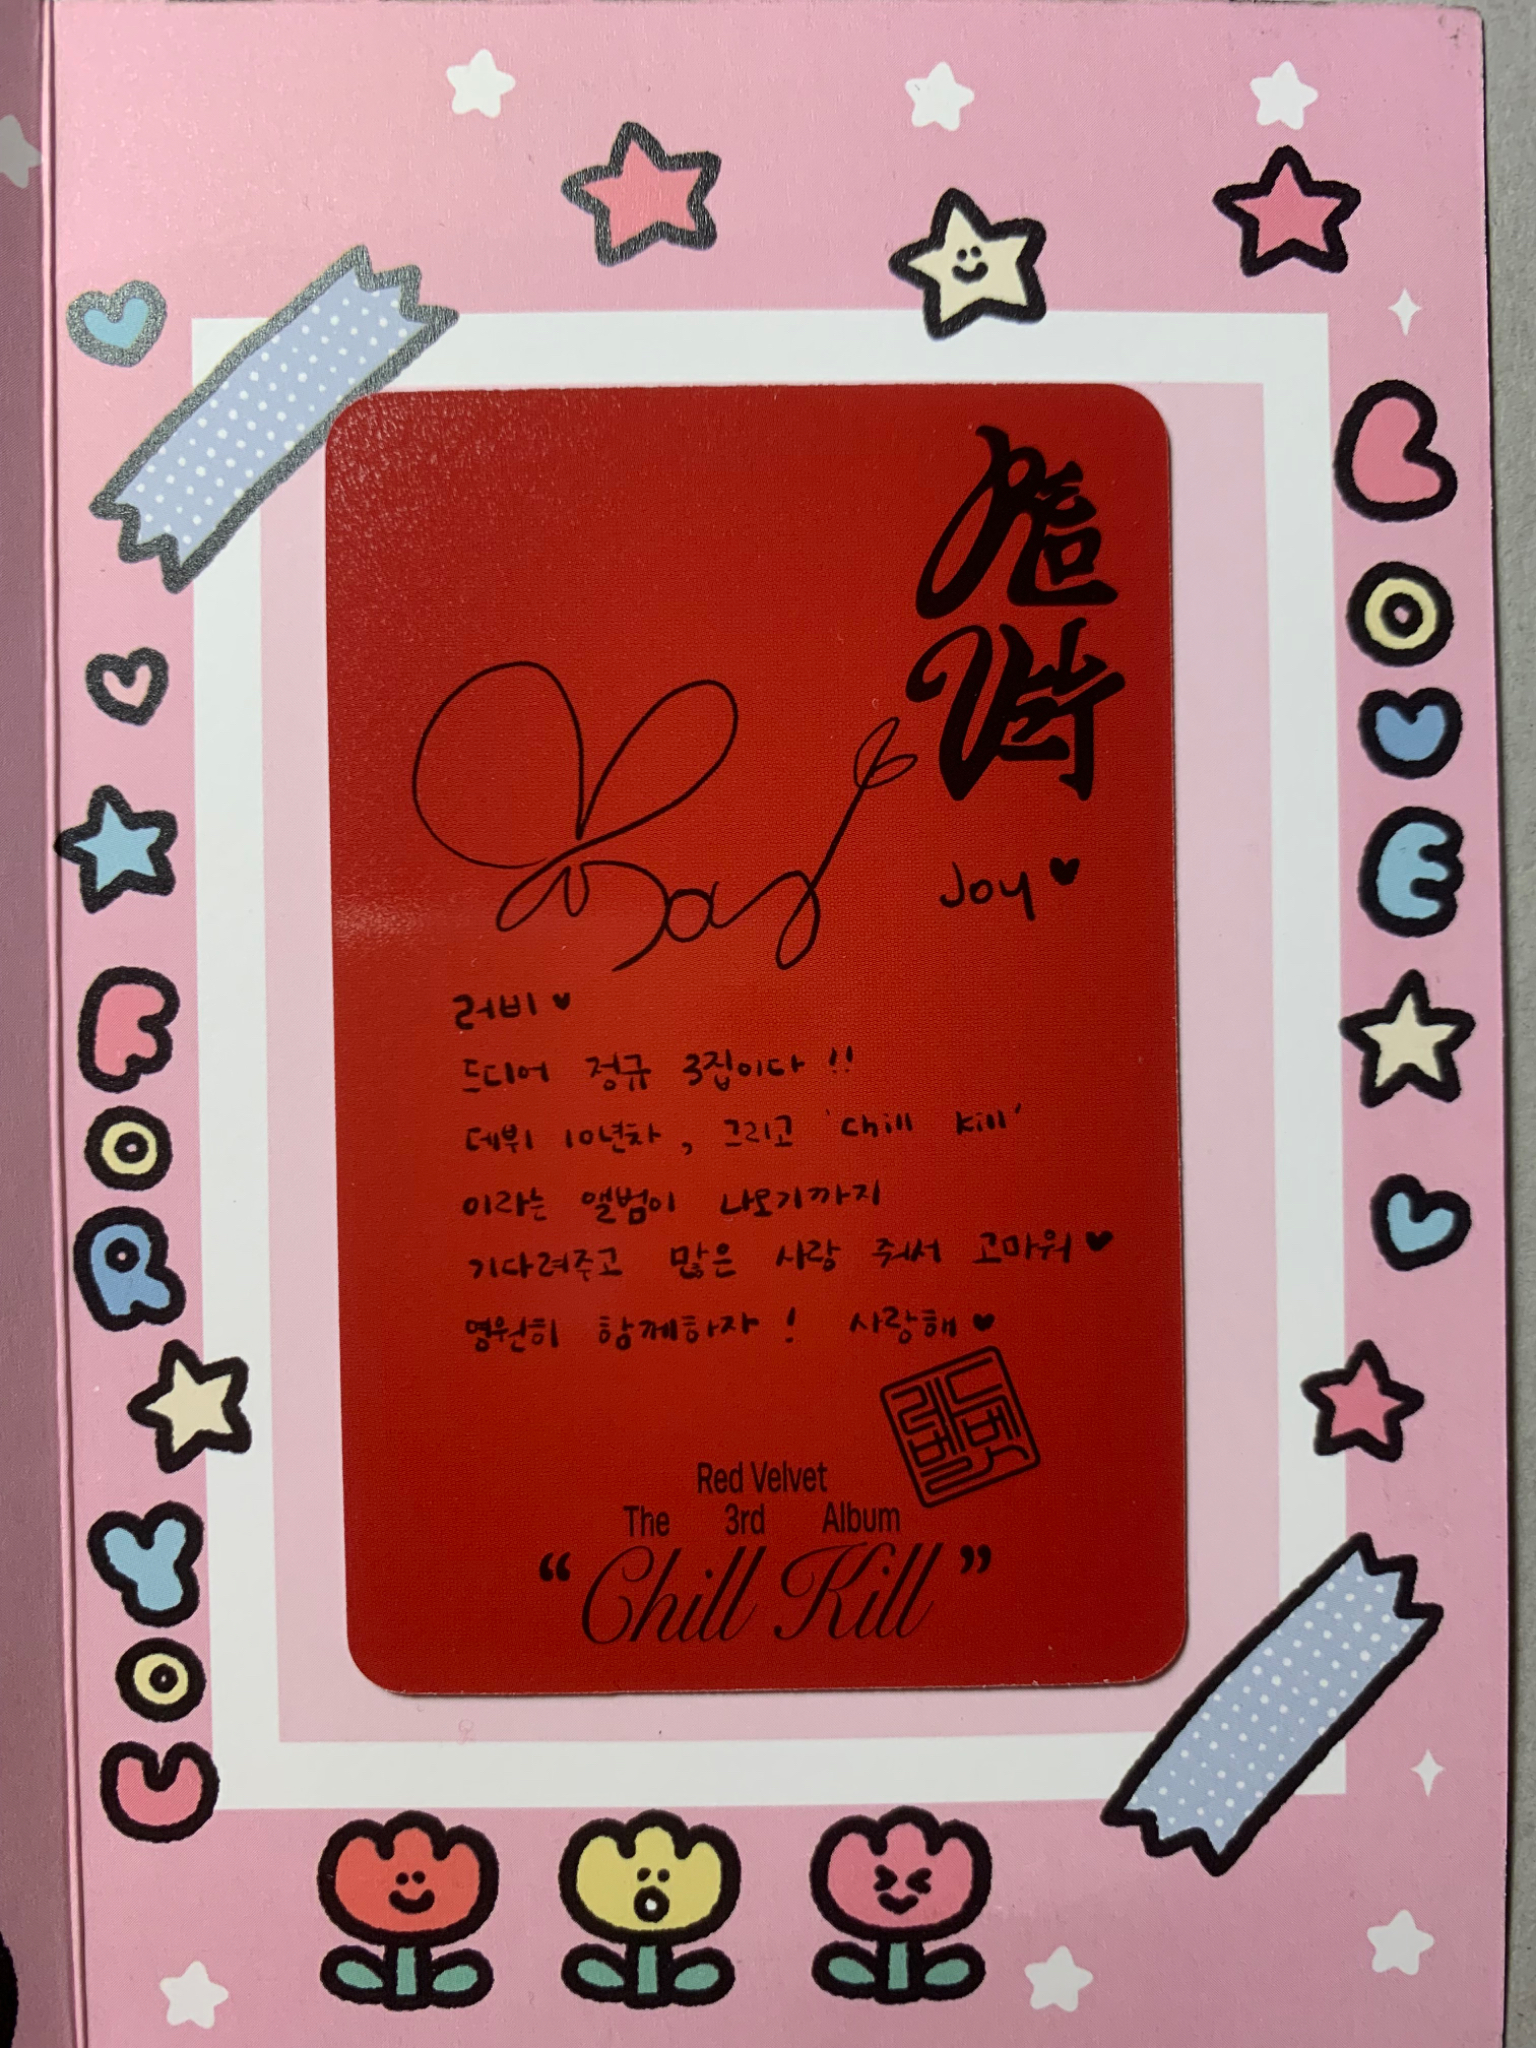 LOVE
FOR
YOU
Joy♥
러비♥
드디어 정규 3집이다!!
데뷔 10년차, 그리고 'Chill Kill'
이라는 앨범이 나오기까지
기다려주고 많은 사랑 줘서 고마워♥
영원히 함께하자! 사랑해♥
레드
벨벳
Red Velvet
The 3rd Album
“Chill Kill”